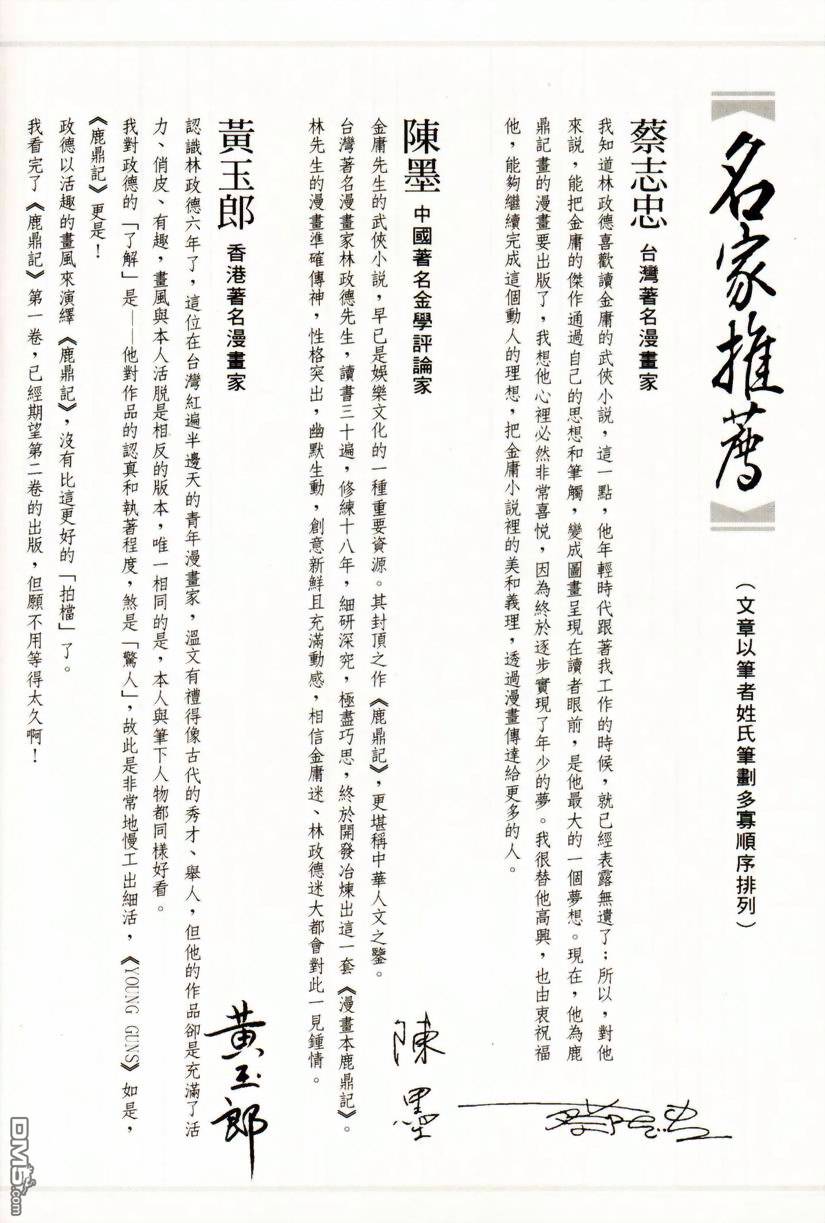 名家推薦
（文章以筆者姓氏筆劃多寡順序排列）
蔡志忠 台灣著名漫畫家
我知道林政德喜歡讀金庸的武俠小說，這一點，他年輕時代跟著我工作的時候，就已經表露無遺了；所以，對他
來說，能把金庸的傑作通過自己的思想和筆觸，變成圖畫呈現在讀者眼前，是他最大的一個夢想。現在，他為鹿
鼎記畫的漫畫要出版了，我想他心裡必然非常喜悅，因為終於逐步實現了年少的夢。我很替他高興，也由衷祝福
他，能夠繼續完成這個動人的理想，把金庸小說裡的美和義理，透過漫畫傳達給更多的人。
蔡志忠
陳墨 中國著名金學評論家
金庸先生的武俠小說，早已是娛樂文化的一種重要資源。其封頂之作《鹿鼎記》，更堪稱中華人文之鑒。
台灣著名漫畫家林政德先生，讀書三十遍，修練十八年，細研深究，極盡巧思，終於開發冶煉出這一套《漫畫本鹿鼎記》。
林先生的漫畫準確傳神，性格突出，幽默生動，創意新鮮且充滿動感，相信金庸迷、林政德迷大都會對此一見鍾情。
陳墨
黃玉郎 香港著名漫畫家
認識林政德六年了，這位在台灣紅遍半邊天的青年漫畫家，溫文有禮得像古代的秀才、舉人，但他的作品卻是充滿了活
力、俏皮、有趣，畫風與本人活脫是相反的版本，唯一相同的是，本人與筆下人物都同樣好看。
我對政德的「了解」是——他對作品的認真和執著程度，煞是「驚人」，故此是非常地慢工出細活，《YOUNG GUNS》如是，
《鹿鼎記》更是！
政德以活趣的畫風來演繹《鹿鼎記》，沒有比這更好的「拍檔」了。
我看完了《鹿鼎記》第一卷，已經期望第二卷的出版，但願不用等得太久啊！
黃玉郎
DM5.com